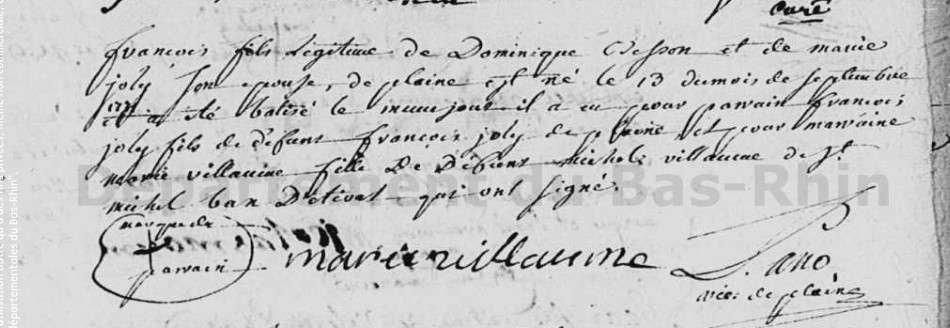 curé
françois fils légitime de Dominique et de marie
joly son épouse, de plaine est né le 13 du mois de septembre
et a été batisé le meme jour il a eu pour parain françois
joly fils de défunt françois joly de plaine et pour maraine
marie villaume fille De Défunt michele villaume de st
michel ban D'étival qui ont signé.
marque du
parain
marie villaume
vic: de plaine
Département du Bas-Rhin